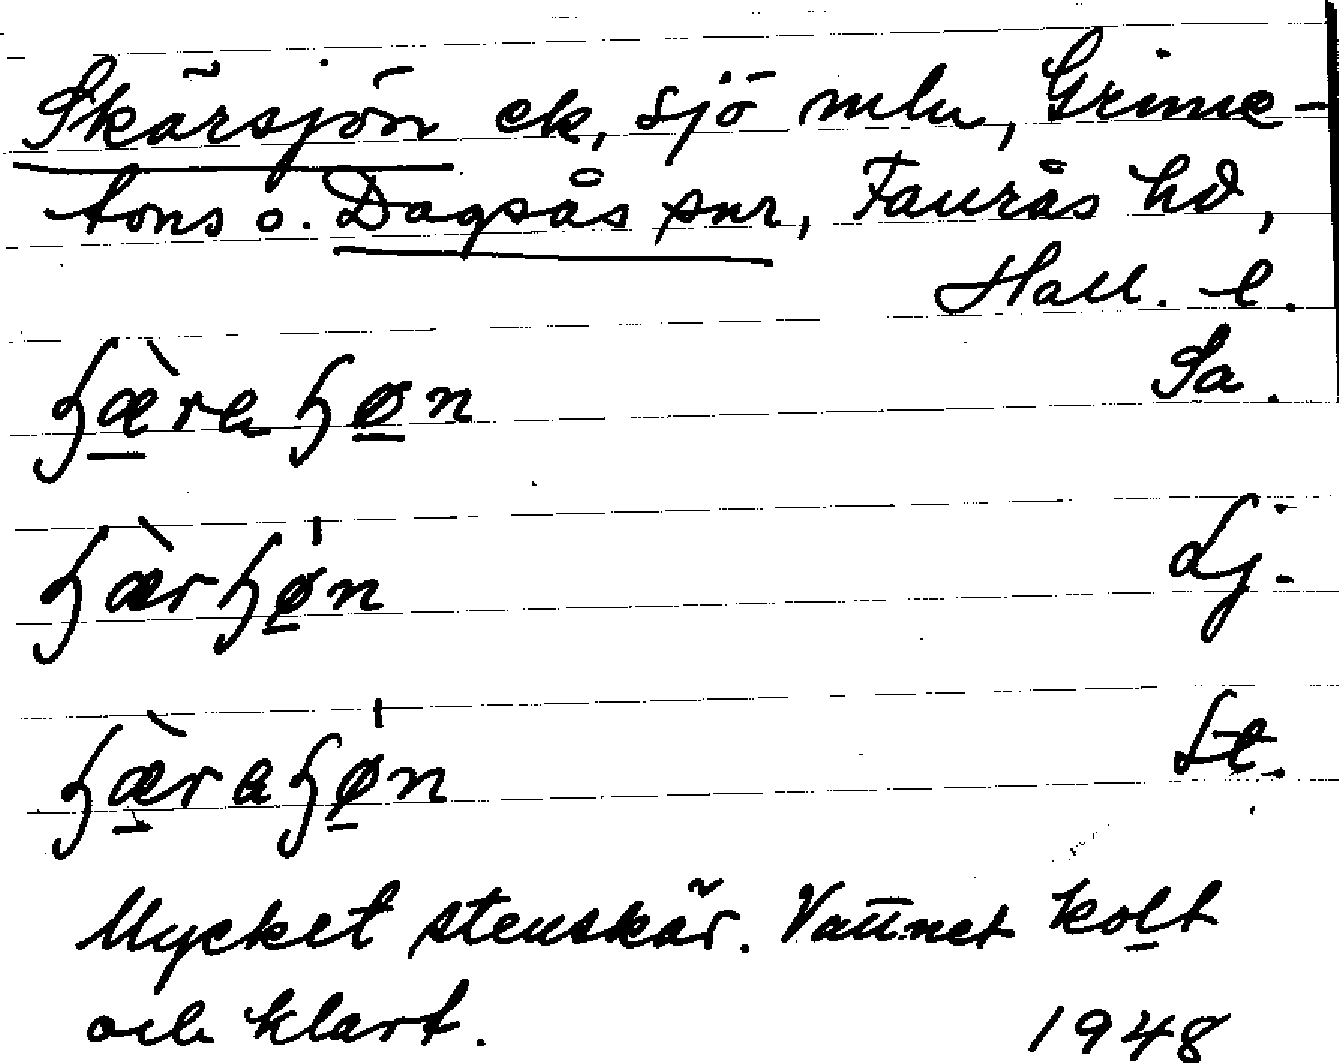 Skärsjön ek, sjö mln, Grime-
tons o. Dagsås snr, Faurås hd,
Hall. l.
ɧæ̀raɧøn Sa.
ɧæ̀rɧøn Lj.
ɧæ̀raɧøn St.
Mycket stenskär. Vattnet kolt
och klart. 1948